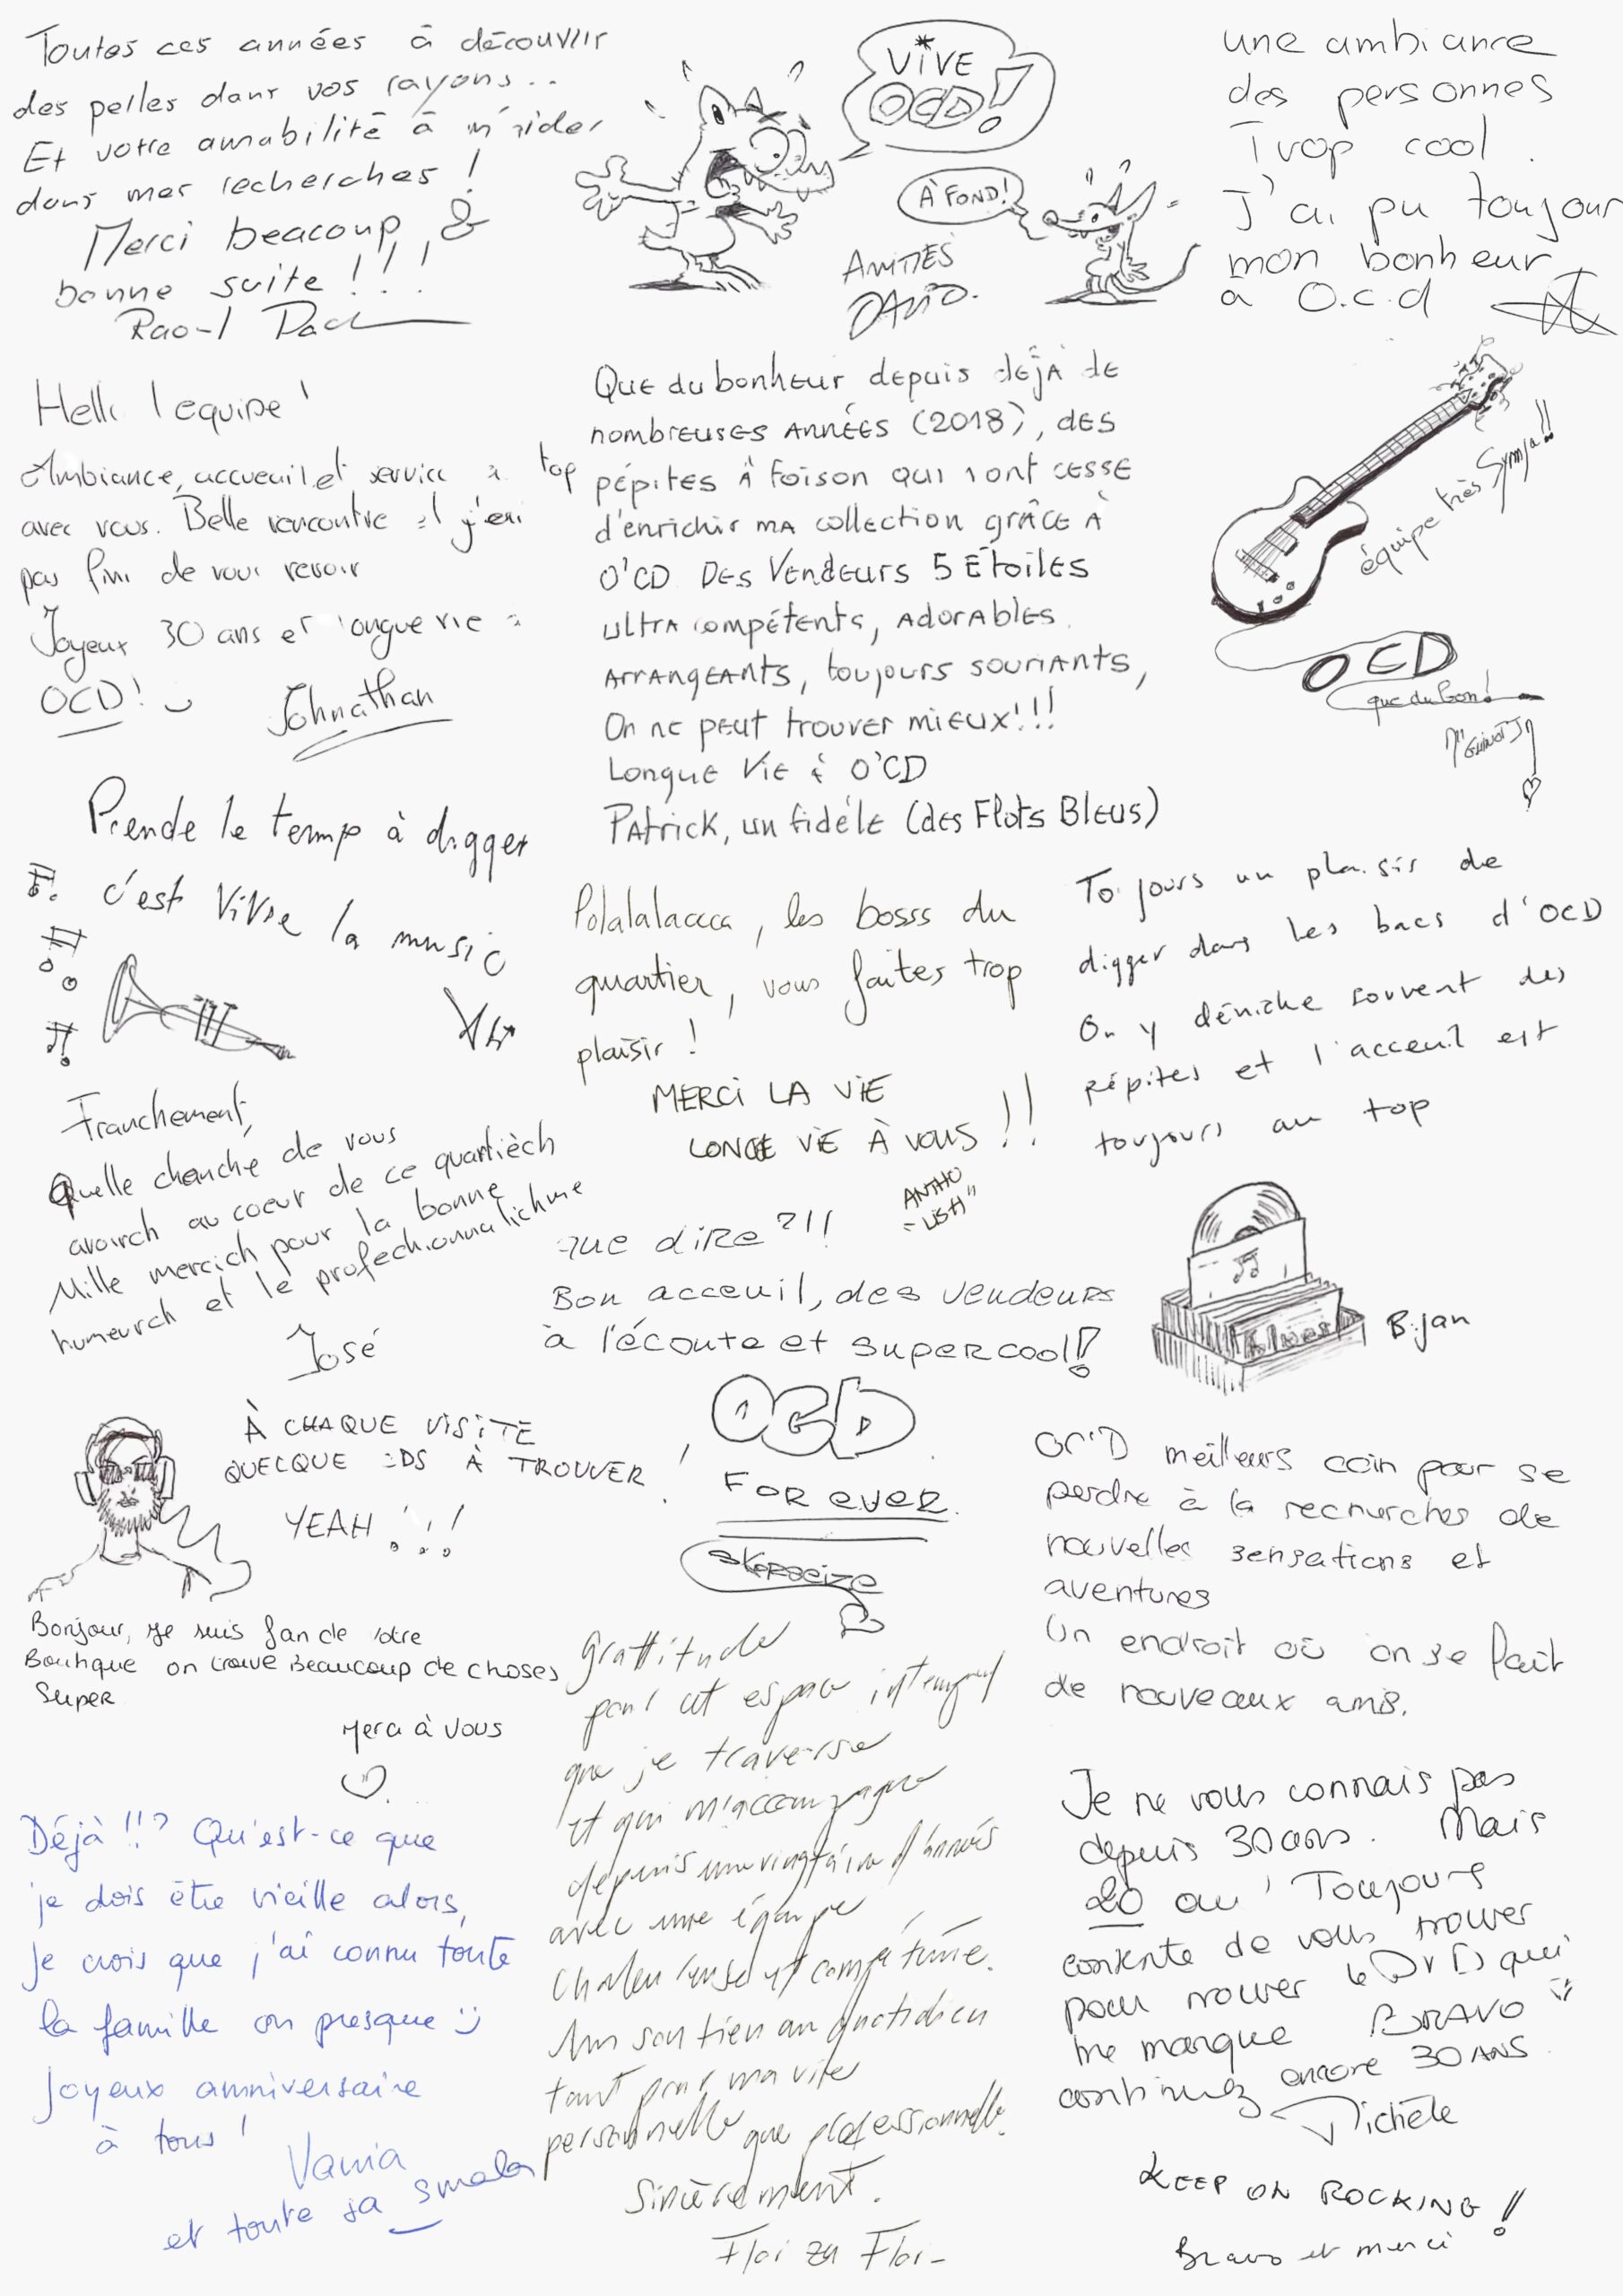 Toutes ces années à découvrir
des perles dans vos rayons...
Et votre amabilité à m'aider
dans mes recherches !
Merci beacoup, &
bonne suite !!!
VIVE
OCD!
À FOND!
AMITIÉS
DAVID.
une ambiance
des personnes
Trop cool.
J'ai pu toujour
mon bonheur
à O.c.d
Hello l'equipe !
Ambiance, accueuil et service à top
avec vous. Belle rencontre et j'en ai
pas fini de vous revoir
Joyeux 30 ans et longue vie à
OCD!
Johnathan
Que du bonheur depuis déjà de
nombreuses années (2018), des
pépites à foison qui n'ont cessé
d'enrichir ma collection grâce à
O'CD. Des vendeurs 5 étoiles
ultra compétents, adorables,
arrangeants, toujours souriants,
On ne peut trouver mieux!!!
Longue vie à O'CD
Patrick, un fidèle (des Flots Bleus)
équipe très Sympa!!
OCD
que du bon!
Prende le temps à digger
c'est vivre la music
Polalalaaaa, les bosss du
quartier, vous faites trop
plaisir !
MERCI LA VIE
LONGUE VIE À VOUS !!
ANTHO
"LISTA"
Toujours un plaisir de
digger dans les bacs d'OCD
On y déniche souvent des
pépites et l'acceuil est
toujours au top
Blues
Bijan
Franchement,
Quelle chanche de vous
avoirch au coeur de ce quartièch
Mille mercich pour la bonne
humeurch et le profechionnalichme
José
Que dire ?!!
Bon acceuil, des vendeurs
à l'écoute et super cool!!
OCD
FOR EVER.
À CHAQUE VISITE
QUELQUE CDS À TROUVER !
YEAH !!!
OC'D meilleurs coin pour se
perdre à la recherches de
nouvelles sensations et
aventures
Un endroit où on se fait
de nouveaux amis.
Bonjour, je suis fan de votre
Boutique on trouve beaucoup de choses
Super
Merci à vous
Grattitude
pour cet espace intemporel
que je traverse
et qui m'accompagne
depuis une vingtaine d'années
avec une équipe
chaleureuse et compétente.
Un soutien au quotidien
tant pour ma vie
personnelle que professionnelle.
Sincèrement.
Flor zu Flor-
Déjà !!? Qu'est-ce que
je dois être vieille alors,
Je crois que j'ai connu toute
la famille ou presque :)
Joyeux anniversaire
à tous !
Vania
et toute sa smala
Je ne vous connais pas
depuis 30 ans. Mais
20 oui ! Toujours
contente de vous trouver
pour trouver le DVD qui
me manque BRAVO
continuez encore 30 ANS.
Michèle
KEEP ON ROCKING !
Bravo et merci